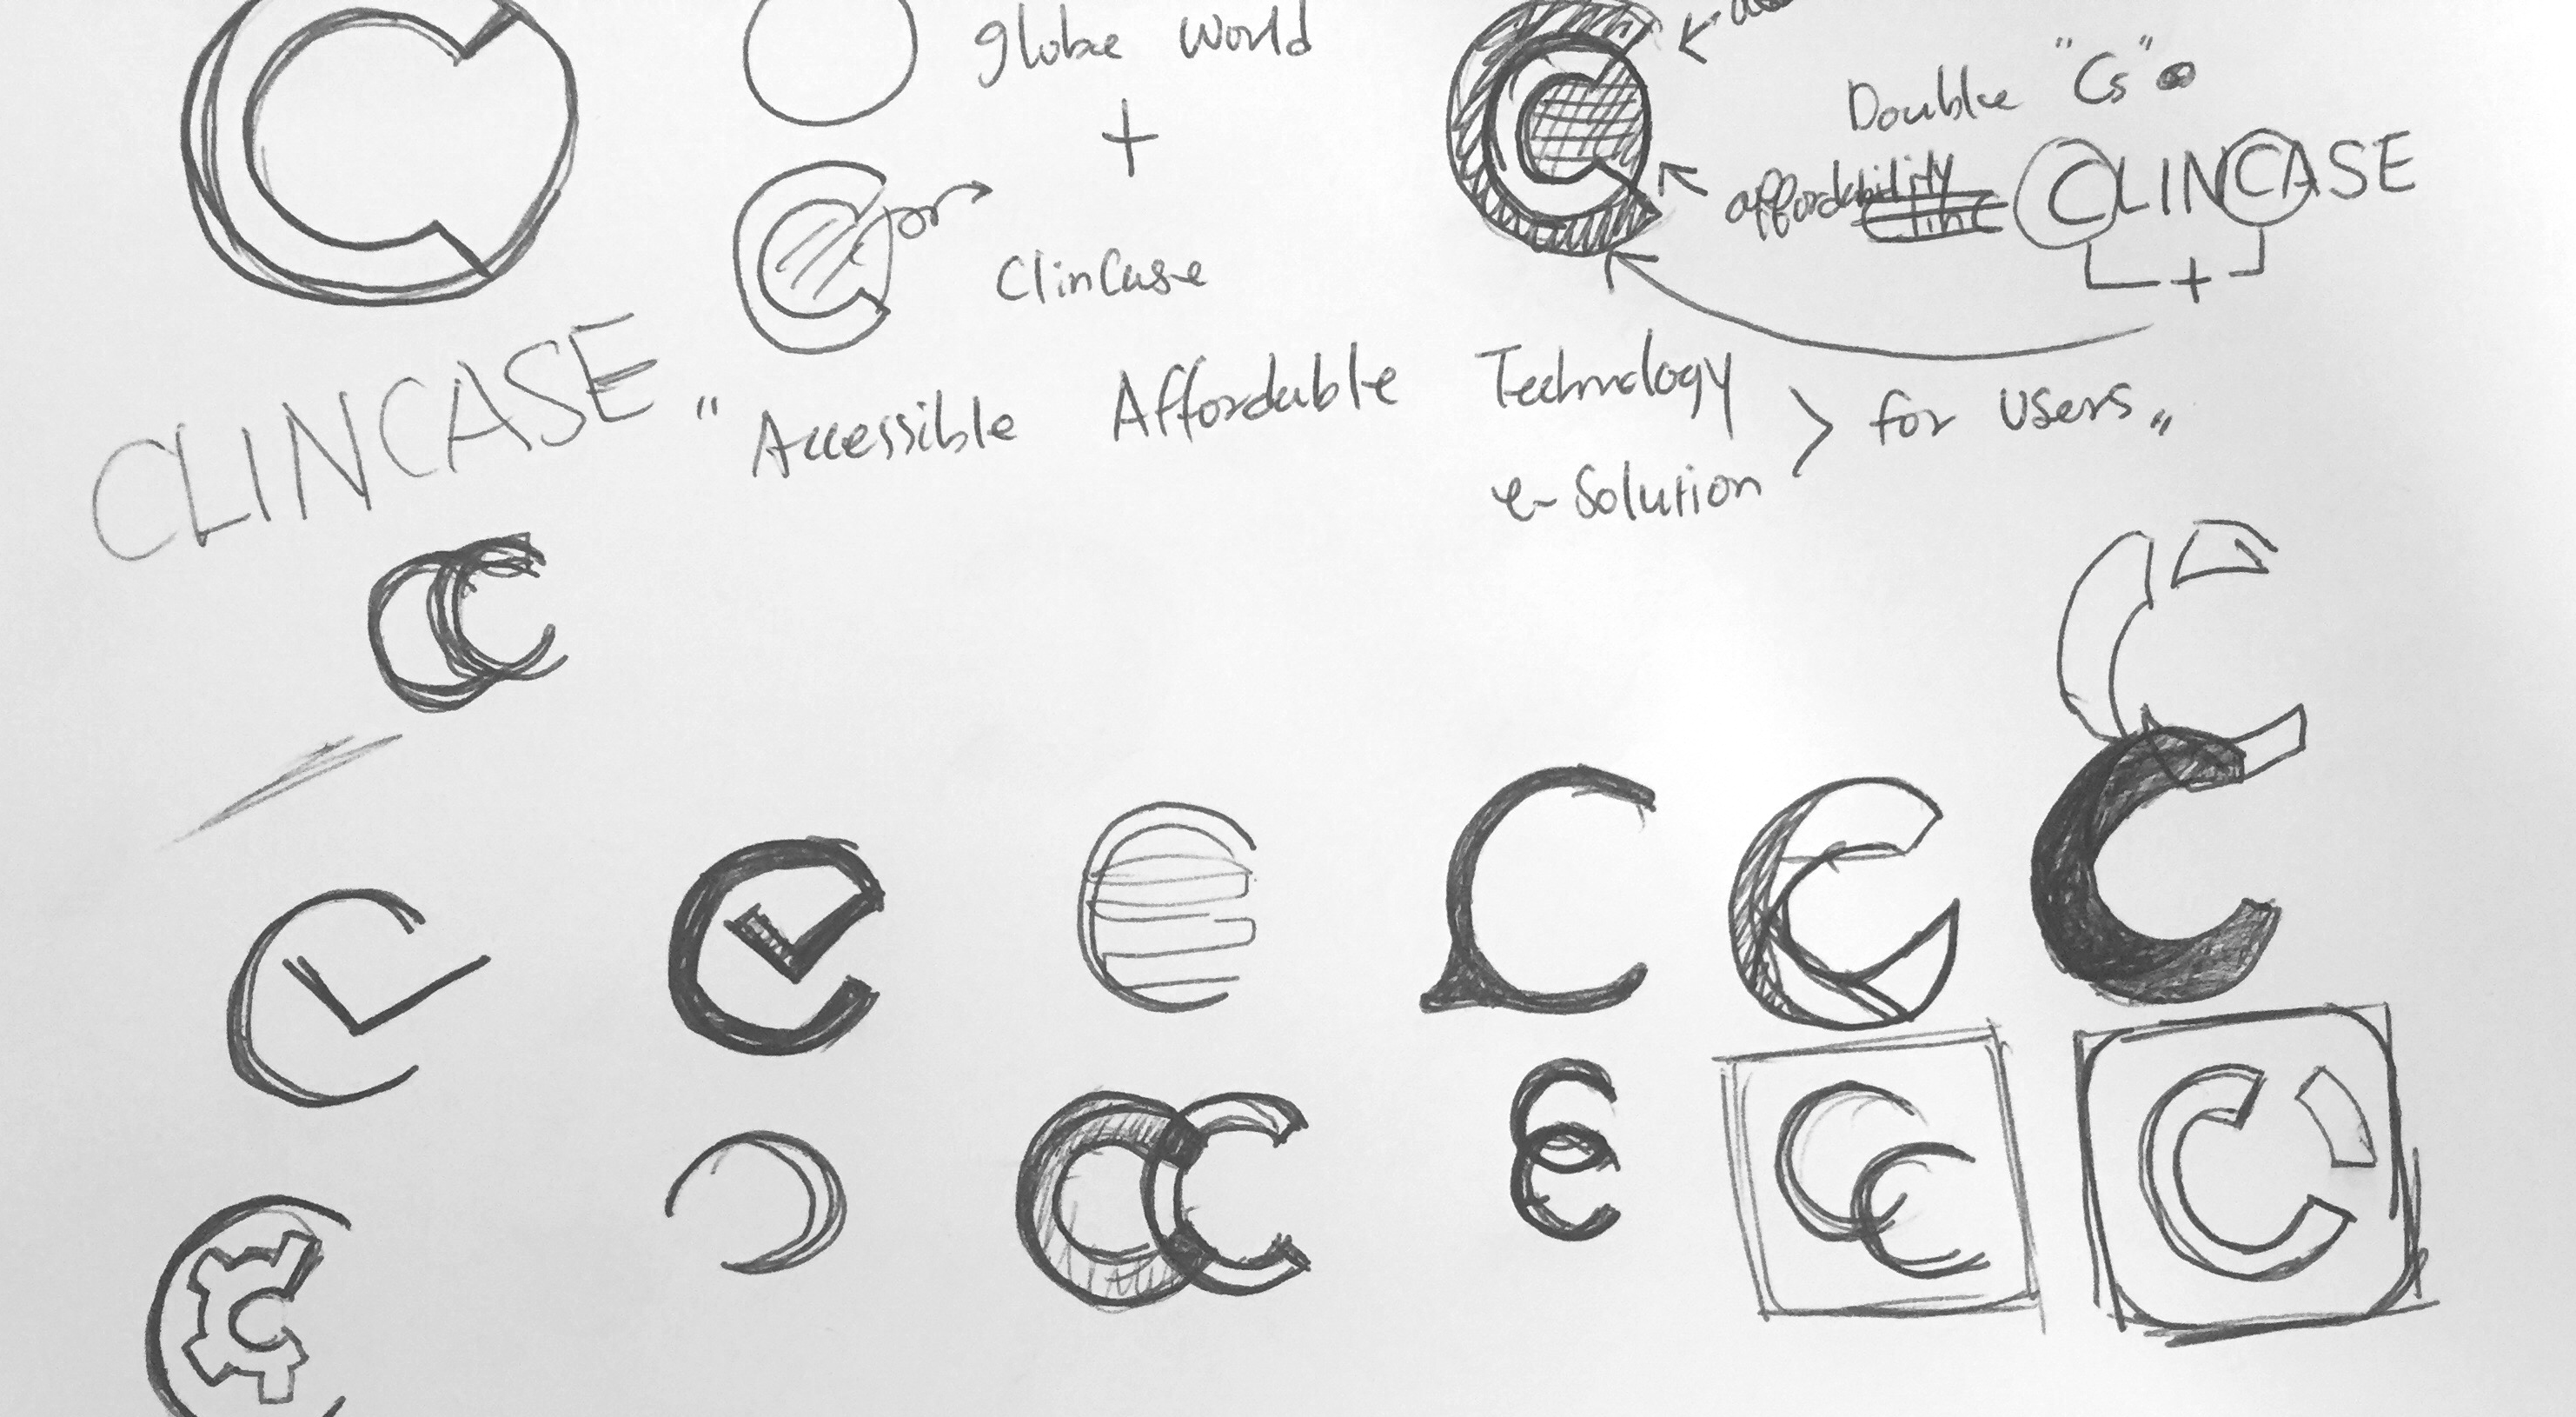 globe World
+
or
ClinCase
Double "Cs"
affordability
CLINCASE
+
CLINCASE
"Accessible Affordable Technology
e-Solution
> for Users"